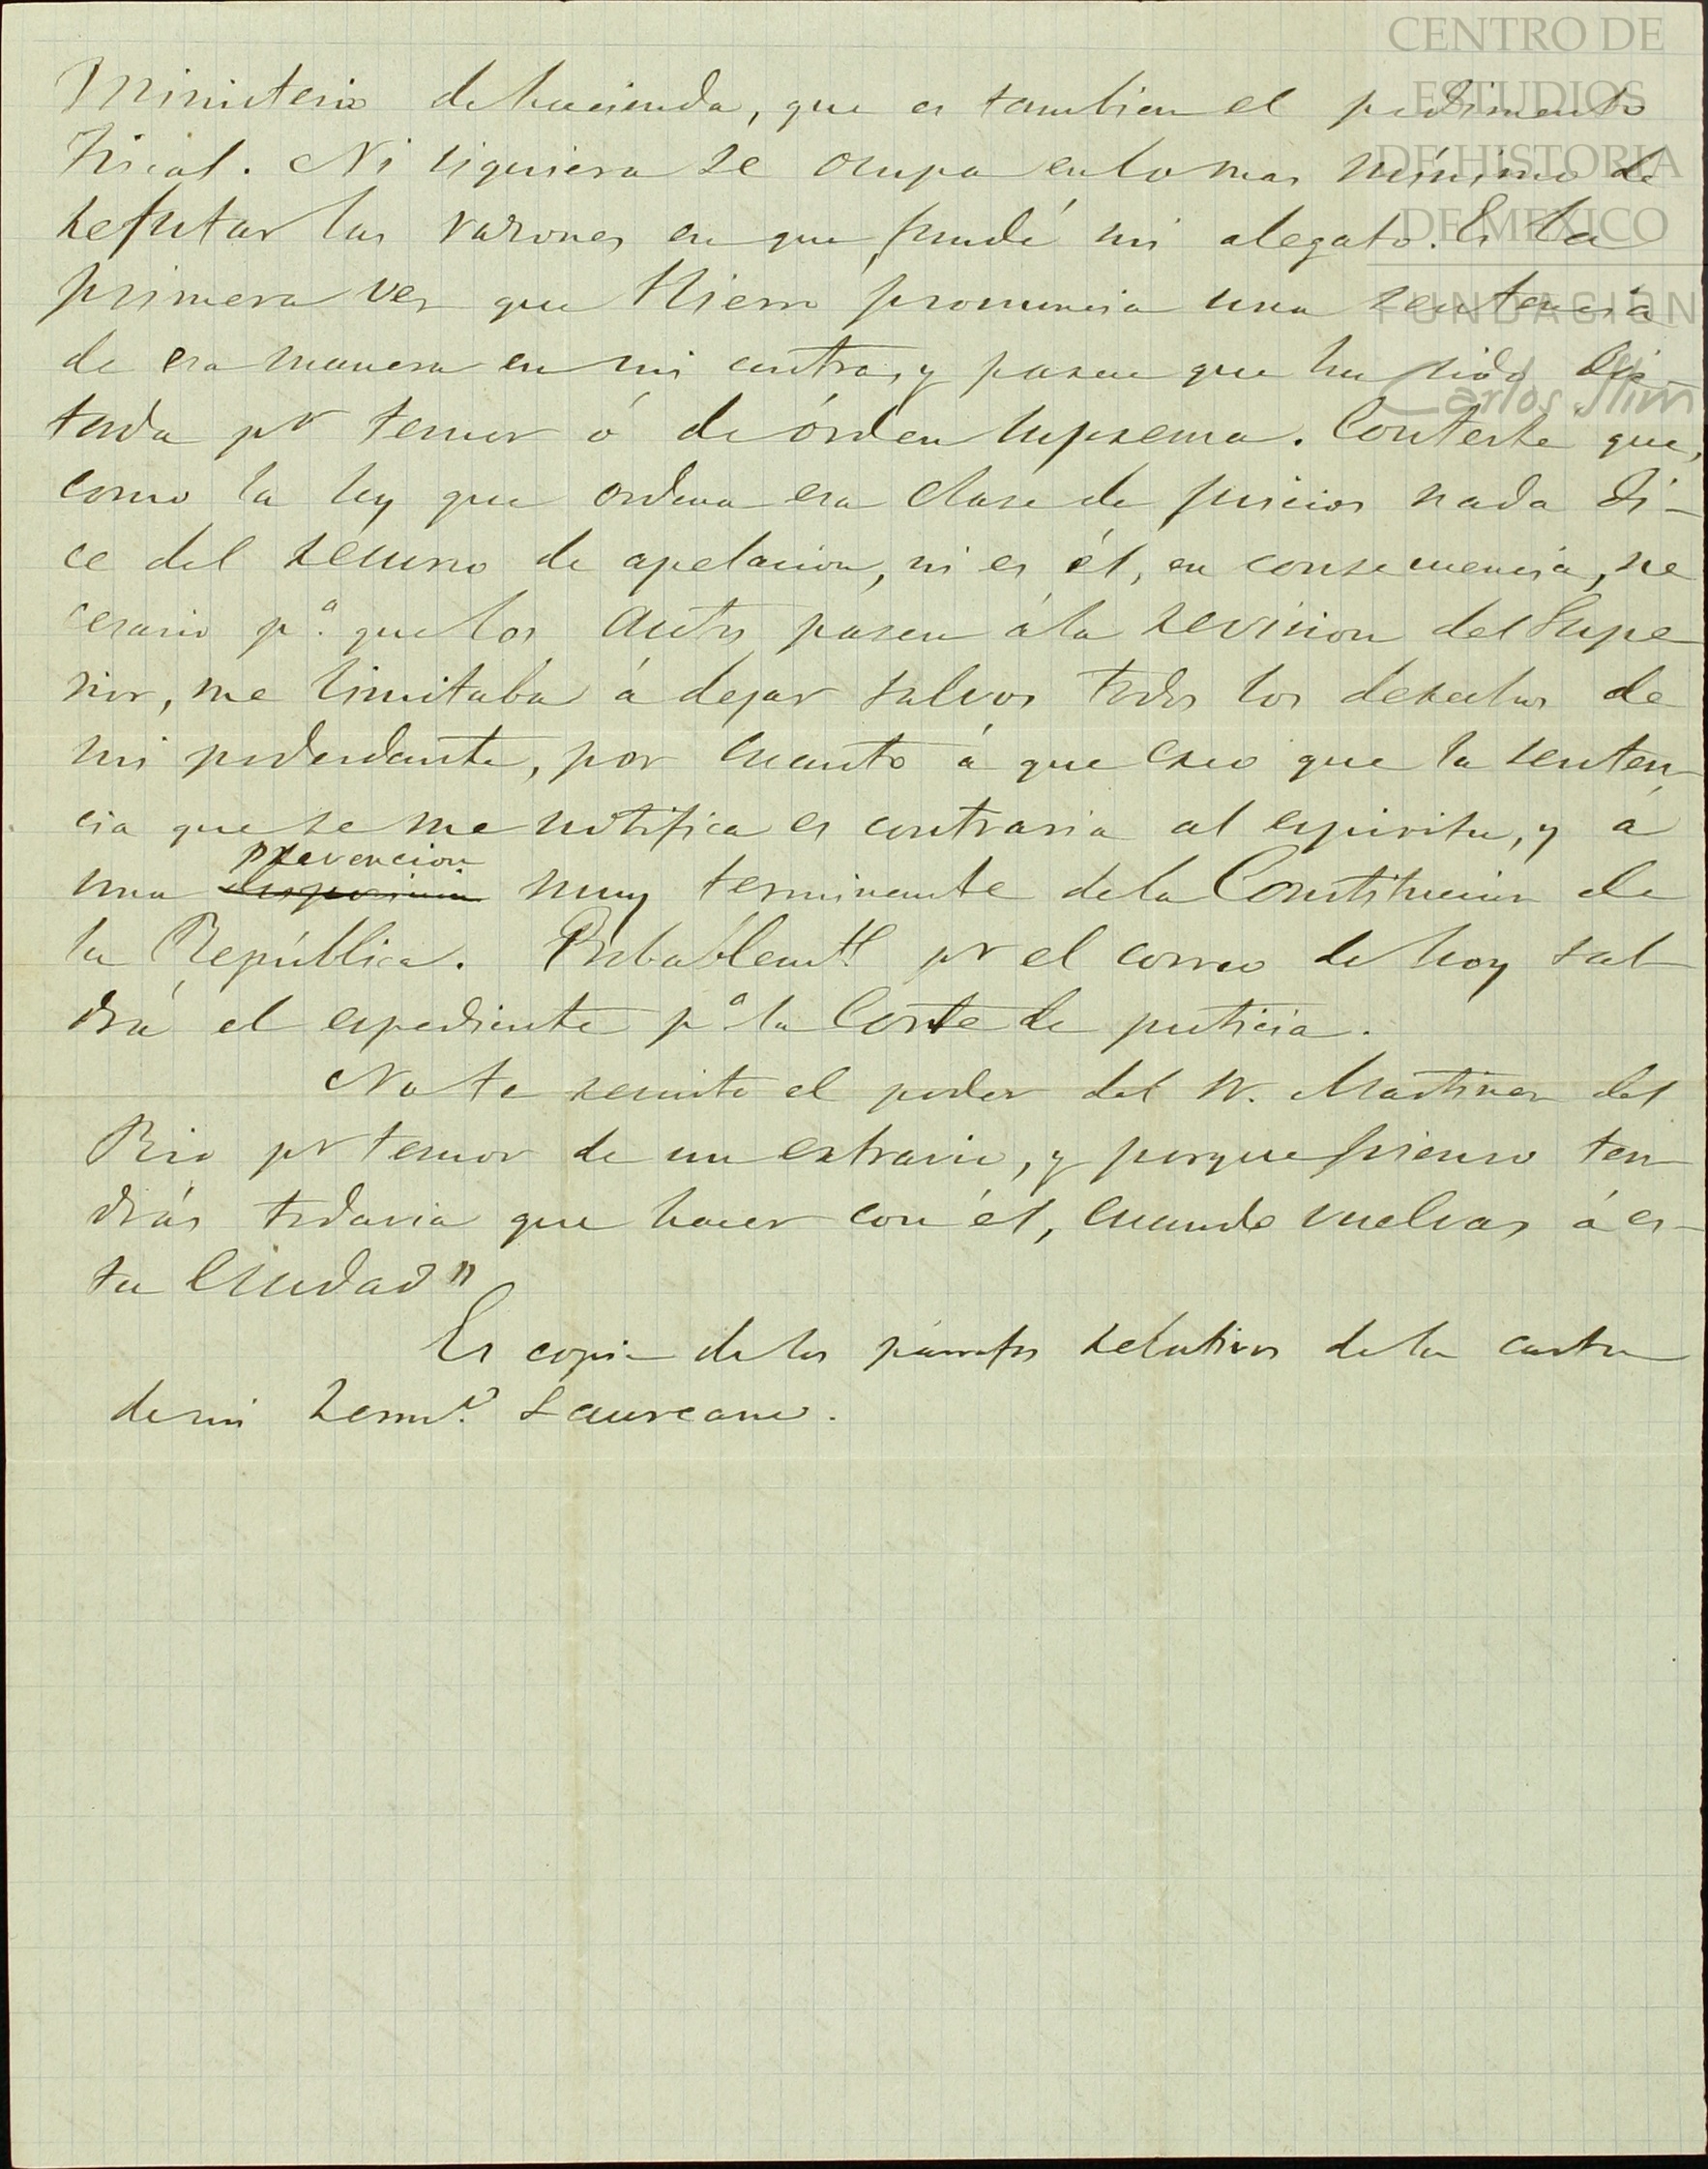 Ministerio de hacienda, que es tambien el pedimento
Fiscal. Ni siquiera se ocupa en lo mas mínimo de
refutar las razones en que fundé mi alegato. Es la
primera vez que Hierro pronuncia una sentencia
de esa manera en mi contra, y parece que ha sido dic-
tada pr temor ó de órden suprema. Contesté que,
como la ley que ordena esa clase de juicios nada di-
ce del recurso de apelacion, ni es él, en consecuencia, ne
cesario pa. que los autos pasen á la revision del Supe
rior, me limitaba á dejar salvos todos los derechos de
mi poderdante, por cuanto á que creo que la senten-
cia que se me notifica es contraria al espiritu, y á
prevencion
una disposicion muy terminante de la Constitucion de
la República. Probablemte pr el correo de hoy sal-
drá el espediente pa la Corte de justicia.
No te remito el poder del Sr. Martinez del
Rio pr temor de un estravio, y porque pienso ten-
drás todavia que hacer con él, cuando vuelvas á es-
ta Ciudad"
Es copia de los párrafos relativos de la carta
de mi hermo. Laureano.
CENTRO DE
ESTUDIOS
DE HISTORIA
DE MEXICO
FUNDACION
Carlos Slim